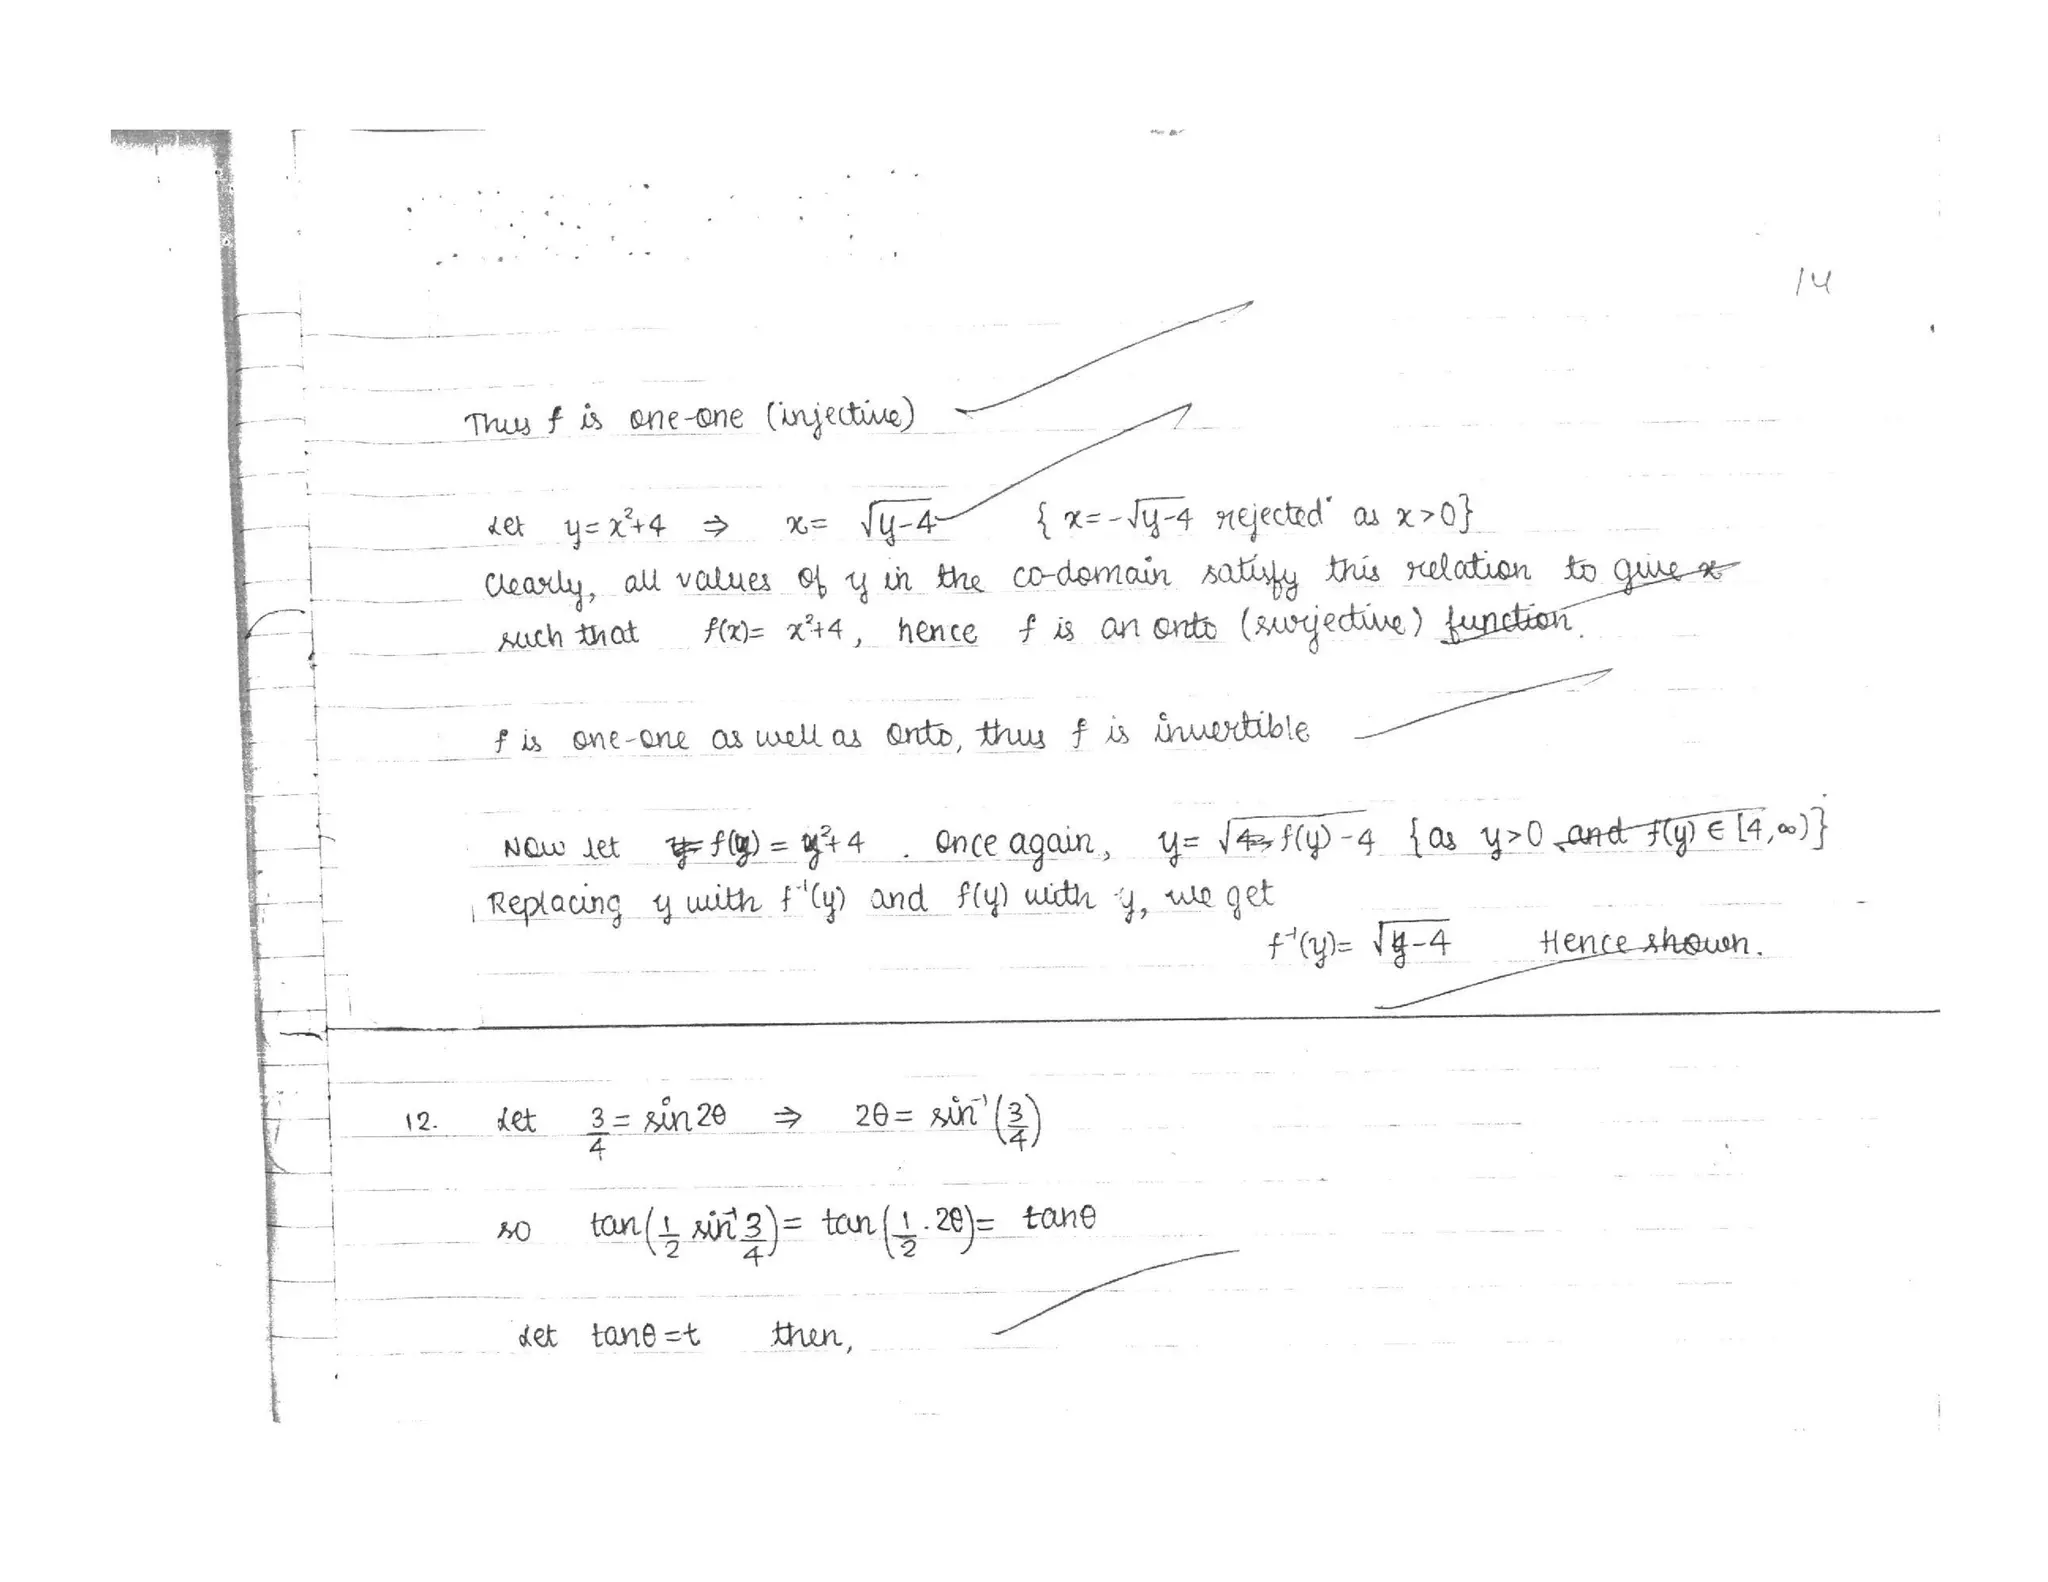 14
Thus f is one-one (injective)
Let y = x²+4 ⇒ x = √(y-4) { x = -√(y-4) rejected as x>0}
Clearly, all values of y in the co-domain satisfy this relation to give x
such that f(x) = x²+4, hence f is an onto (surjective) function.
f is one-one as well as onto, thus f is invertible
Now let f(y) = y²+4 . Once again, y = √(f(y)-4) {as y>0 and f(y) ∈ [4,∞)}
Replacing y with f⁻¹(y) and f(y) with y, we get
f⁻¹(y) = √(y-4) Hence shown.
12. Let 3/4 = sin2θ ⇒ 2θ = sin⁻¹(3/4)
so tan(1/2 sin⁻¹ 3/4) = tan(1/2 . 2θ) = tanθ
Let tanθ = t then,